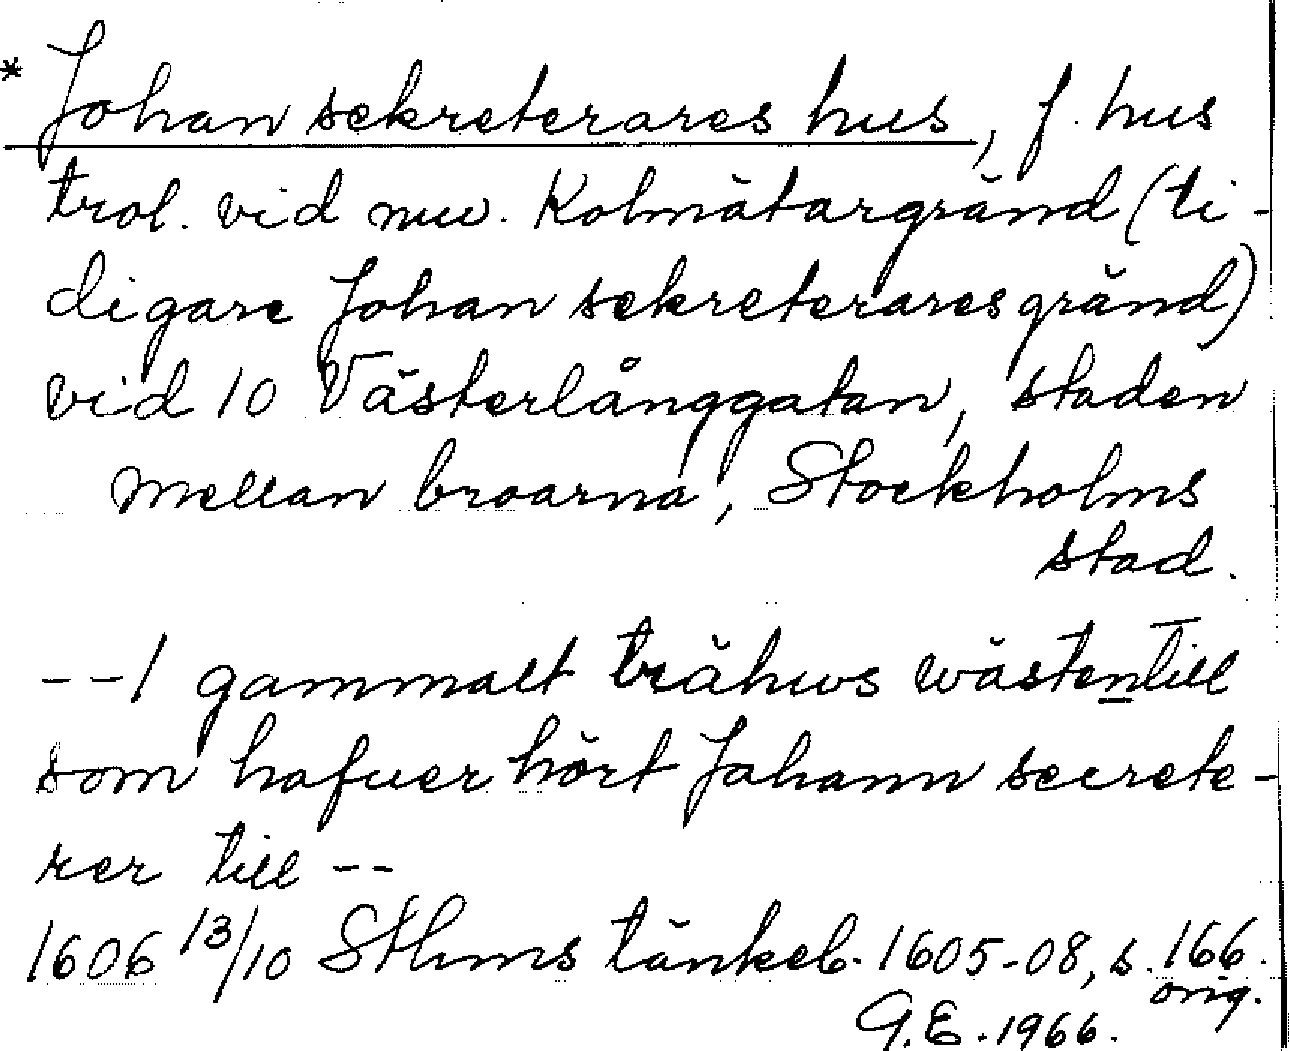 * Johan sekreterares hus, f. hus
trol. vid nuv. Kolmätargränd (ti-
digare Johan sekreteraresgränd)
vid 10 Västerlånggatan, staden
mellan broarna, Stockholms
stad.
--1 gammalt trähws wästentill
som hafuer hört Johann secrete-
rer till --
1606 13/10 Sthms tänkeb. 1605-08, s. 166.
orig.
G.E. 1966.